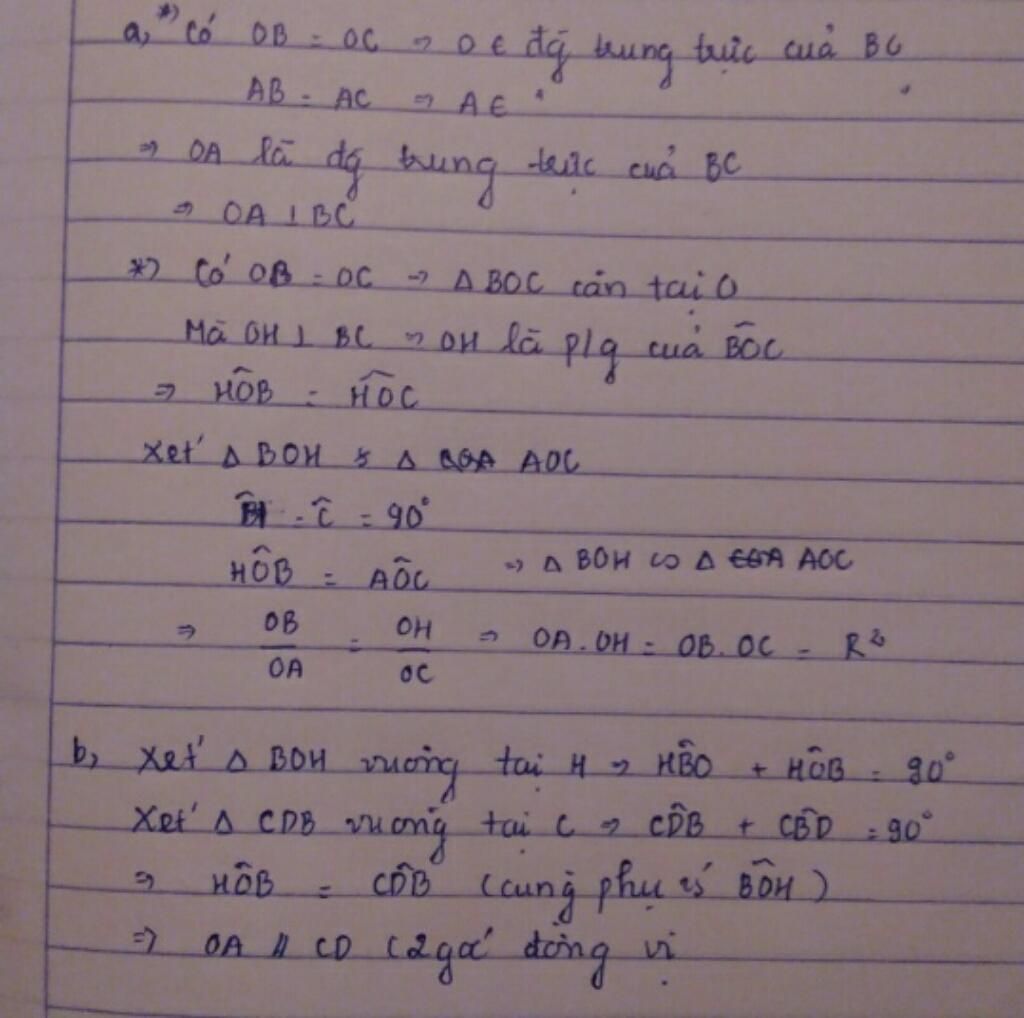 a, *) Có OB = OC => O ∈ đg trung trực của BC
AB = AC => A ∈ "
=> OA là đg trung trực của BC
=> OA ⊥ BC
*) Có OB = OC => Δ BOC cân tại O
Mà OH ⊥ BC => OH là p/g của BÔC
=> HÔB = HÔC
Xét Δ BOH & Δ AOC
Ĥ = Ĉ = 90°
HÔB = AÔC => Δ BOH ∽ Δ AOC
=> OB/OA = OH/OC => OA.OH = OB.OC = R²
b, Xét Δ BOH vuông tại H => HB̂O + HÔB = 90°
Xét Δ CDB vuông tại C => CD̂B + CB̂D = 90°
=> HÔB = CD̂B (cùng phụ vs BÔH)
=> OA // CD (2 góc đồng vị